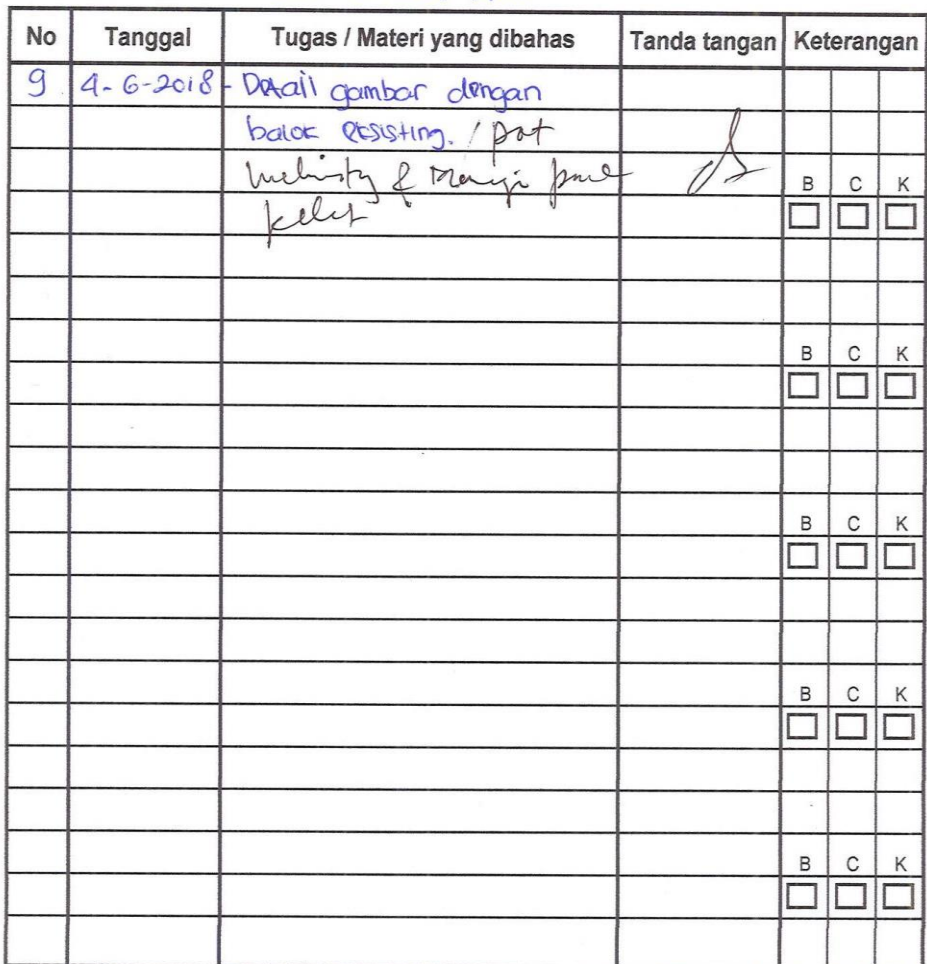 No Tanggal Tugas / Materi yang dibahas Tanda tangan Keterangan
9 4-6-2018 - Detail gambar dengan
balok eksisting. / pot
&
B C K
B C K
B C K
B C K
B C K